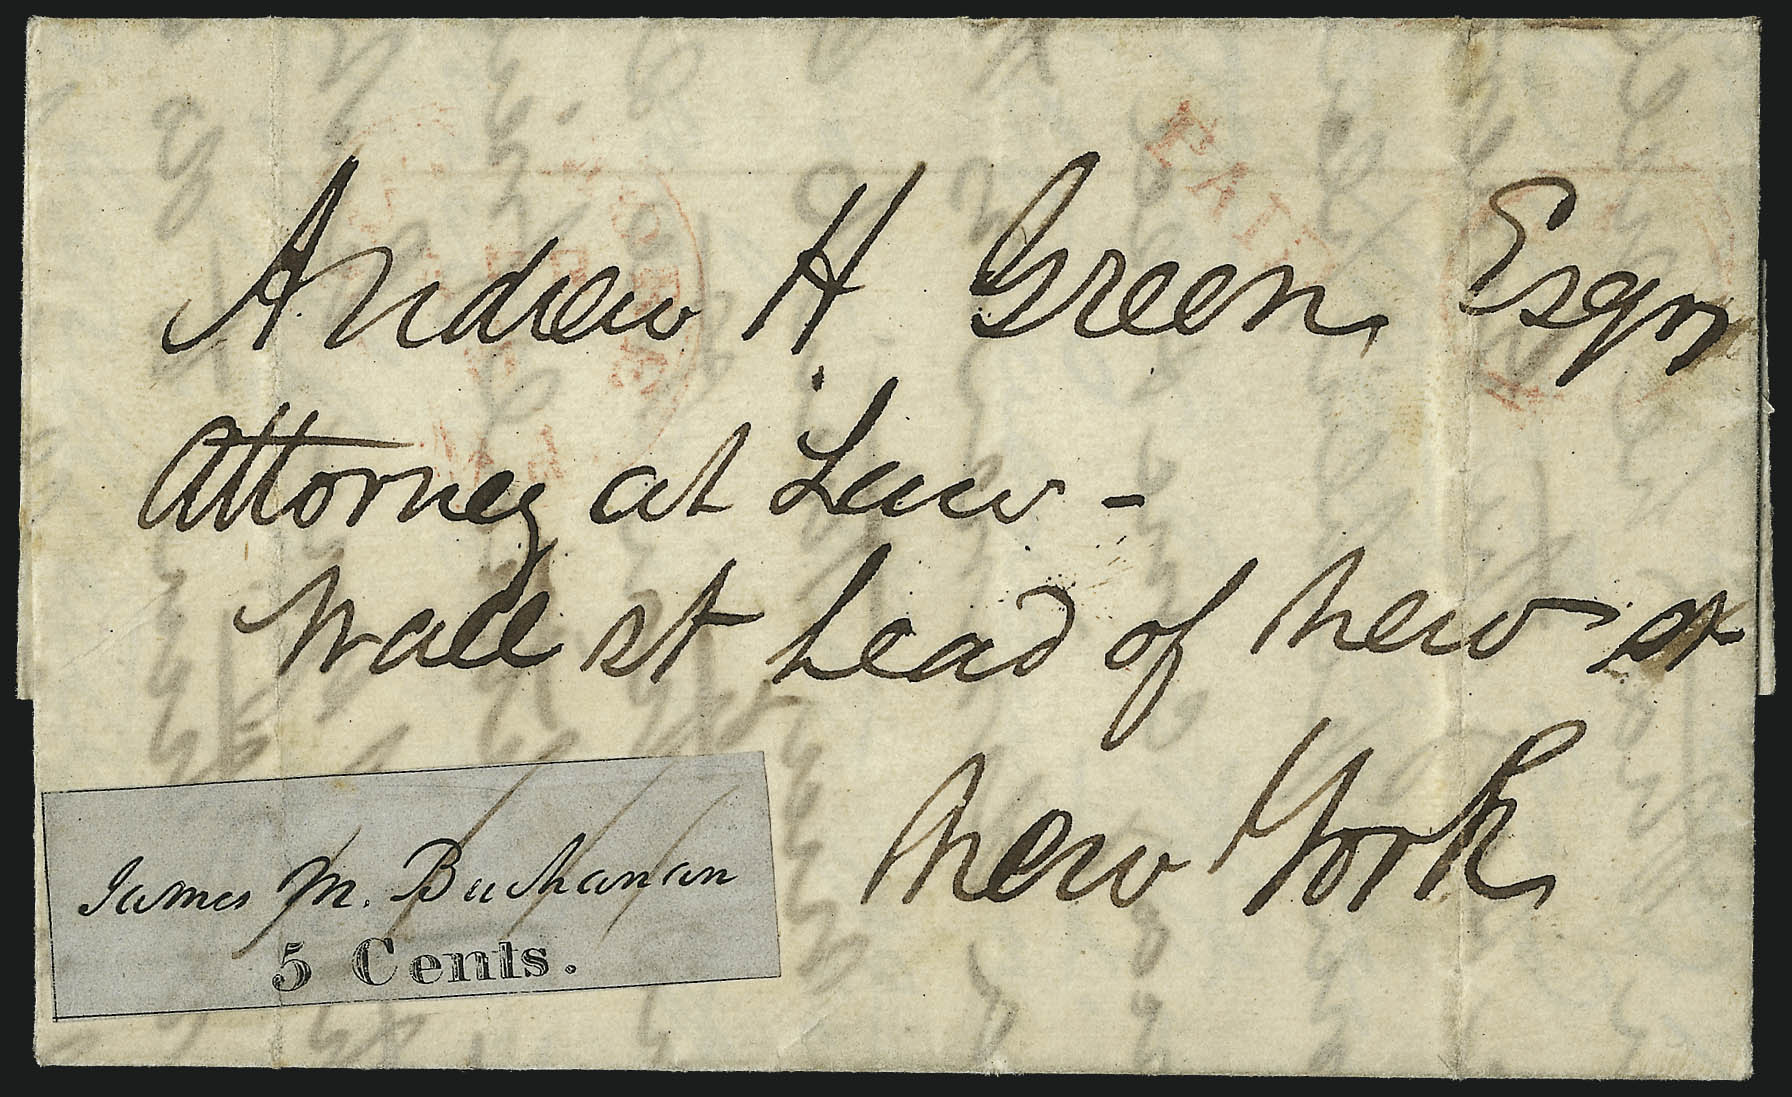 PAID
Andrew H Green, Esqr
Attorney at Law -
Wall st head of New st
New York,
James M. Buchanan
5 Cents.